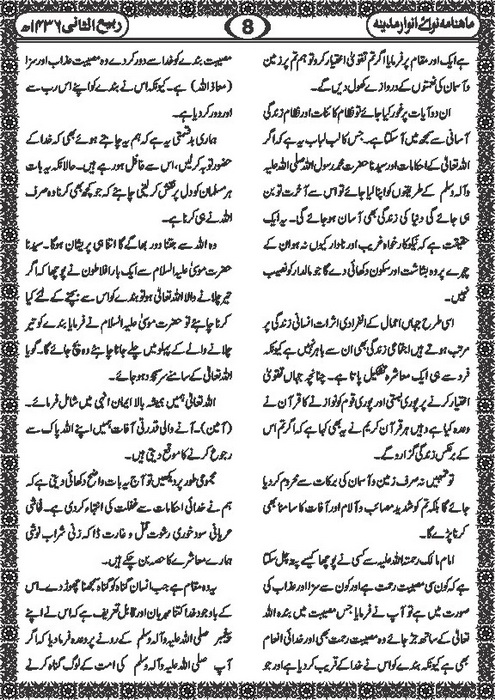 ماهنامہ نوائے انوارِ مدینہ
8
ربیع الثانی ۱۴۳۶ھ
ہے ایک اور مقام پر فرمایا اگر تم تقویٰ اختیار کرو تو ہم تم پر زمین
و آسمان کی نعمتوں کے دروازے کھول دیں گے۔
ان دو آیات پر غور کیا جائے تو نظامِ کائنات اور نظامِ زندگی
آسانی سے سمجھ میں آ سکتا ہے۔ جس کا لب لباب یہ ہے کہ اگر
اللہ تعالیٰ کے احکامات اور سیدنا حضرت محمد رسول اللہ صلی اللہ علیہ
وآلہ وسلم کے طریقوں کو اپنا لیا جائے تو اس سے آخرت تو بن
ہی جائے گی دنیا کی زندگی بھی آسان ہو جائے گی۔ یہ ایک
حقیقت ہے کہ نیکوکار خواہ غریب اور نادار کیوں نہ ہو ان کے
چہرے پر وہ بشاشت اور سکون دکھائی دے گا جو مالدار کو نصیب
نہیں۔
اسی طرح جہاں اعمال کے انفرادی اثرات انسانی زندگی پر
مرتب ہوتے ہیں اجتماعی زندگی بھی ان سے باہر نہیں ہے کیونکہ
فرد سے ہی ایک معاشرہ تشکیل پاتا ہے۔ چنانچہ جہاں تقویٰ
اختیار کرنے پر پوری بستی اور پوری قوم کو نوازنے کا قرآن نے
وعدہ کیا ہے وہیں ہر قرآن کریم نے یہ بھی کہا ہے کہ اگر تم اس
کے برعکس زندگی گزارو گے۔
تو تمہیں نہ صرف زمین و آسمان کی برکات سے محروم کر دیا
جائے گا بلکہ تم کو شدید مصائب و آلام اور آفات کا سامنا بھی
کرنا پڑے گا۔
امام مالک رحمتہ اللہ علیہ سے کسی نے پوچھا کیسے پتہ چل سکتا
ہے کہ کون سی مصیبت رحمت ہے اور کون سے سزا اور عذاب کی
صورت میں ہے تو آپ نے فرمایا جس مصیبت میں بندہ اللہ
تعالیٰ کے ساتھ جڑ جائے وہ مصیبت رحمت بھی اور خدائی انعام
بھی ہے کیونکہ بندہ کو اس نے خدا کے قریب کر دیا ہے اور جو
مصیبت بندے کو خدا سے دور کر دے وہ مصیبت عذاب اور سزا
(معاذ اللہ) ہے۔ کیونکہ اس نے بندے کو اپنے اس رب سے
اور دور کر دیا ہے۔
ہماری بدقسمتی یہ ہے کہ ہم یہ چاہتے ہوئے بھی کہ خدا کے
حضور توبہ کر لیں، اس سے غافل ہو رہے ہیں۔ حالانکہ یہ بات
ہر مسلمان کو دل پر نقش کر لینی چاہئے کہ جو کچھ بھی کرنا وہ صرف
اللہ نے ہی کرنا ہے۔
وہ اللہ سے جتنا دور بھاگے گا اتنا ہی پریشان ہو گا۔ سیدنا
حضرت موسیٰ علیہ السلام سے ایک بار افلاطون نے پوچھا کہ اگر
تیر چلانے والا اللہ تعالیٰ ہو تو بندے کو اس سے بچنے کے لئے کیا
کرنا چاہئے تو حضرت موسیٰ علیہ السلام نے فرمایا بندے کو تیر
چلانے والے کے پہلو میں چلے جانا چاہئے وہ بچ جائے گا۔ گویا
اللہ تعالیٰ کے سامنے سربسجود ہو جائے۔
اللہ تعالیٰ ہمیں ہمیشہ بالا ایمان انہی میں شامل فرمائے۔
(آمین)۔ آنے والی قدرتی آفات ہمیں اپنے اللہ پاک سے
رجوع کرنے کا موقع دیتی ہیں۔
مجموعی طور پر دیکھیں تو آج یہ بات واضح دکھائی دیتی ہے کہ
ہم نے خدائی احکامات سے غفلت کی انتہا کر دی ہے۔ فحاشی
عریانی سود خوری رشوت قتل و غارت ڈاکہ زنی شراب نوشی
ہمارے معاشرے کا حصہ بن چکے ہیں۔
یہ وہ مقام ہے جب انسان گناہ کو گناہ سمجھنا چھوڑ دے۔ اس
کے باوجود خدا کتنا مہربان اور قابل تعریف ہے کہ اس نے اپنے
پیغمبر صلی اللہ علیہ وآلہ وسلم کے رونے پر وعدہ فرما دیا کہ اگر
آپ صلی اللہ علیہ وآلہ وسلم کی امت کے لوگ گناہ کرنے